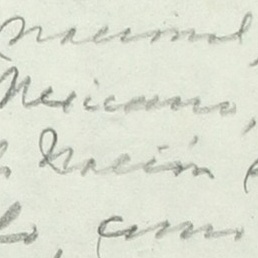 nacional,
Mexicano,
Nación
lo, como